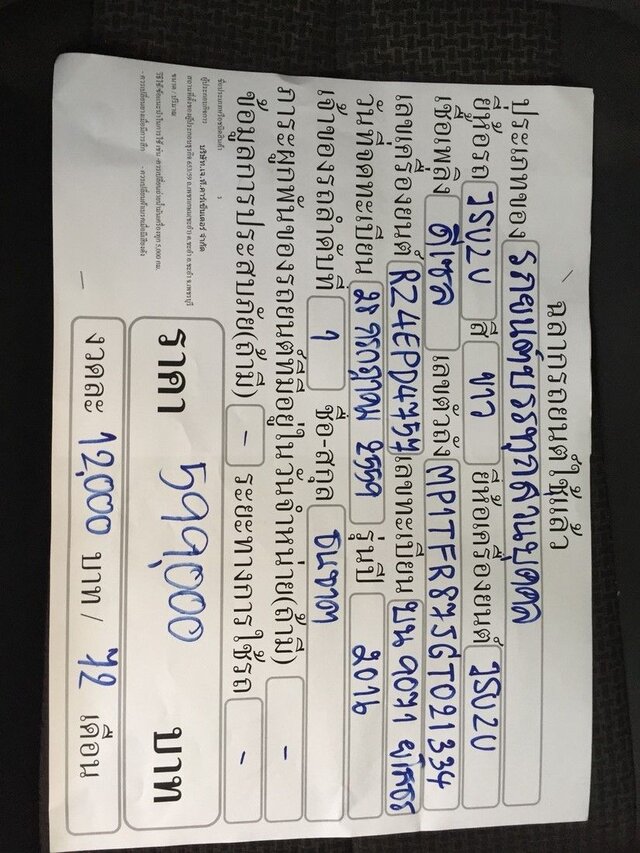 ฉลากรถยนต์ใช้แล้ว
ประเภทของ รถยนต์บรรทุกส่วนบุคคล
ยี่ห้อรถ ISUZU สี ขาว ยี่ห้อเครื่องยนต์ ISUZU
เชื้อเพลิง ดีเซล เลขตัวถัง MP1TFR87JGT021334
เลขเครื่องยนต์ RZ4EPD4757 เลขทะเบียน บน 9071 ยโสธร
วันที่จดทะเบียน มกราคม 2559 รุ่นปี 2016
เจ้าของรถลำดับที่ 1 ชื่อ-สกุล ธนชาต
ภาระผูกพันของรถยนต์ที่มีอยู่ในวันจำหน่าย(ถ้ามี) -
ข้อมูลการประสบภัย(ถ้ามี) - ระยะทางการใช้รถ -
ผู้ประกอบกิจการ บริษัท.เจ.พี.คาร์เซ็นเตอร์ จำกัด
ราคา 599,000 บาท
งวดละ 12,000 บาท / 72 เดือน